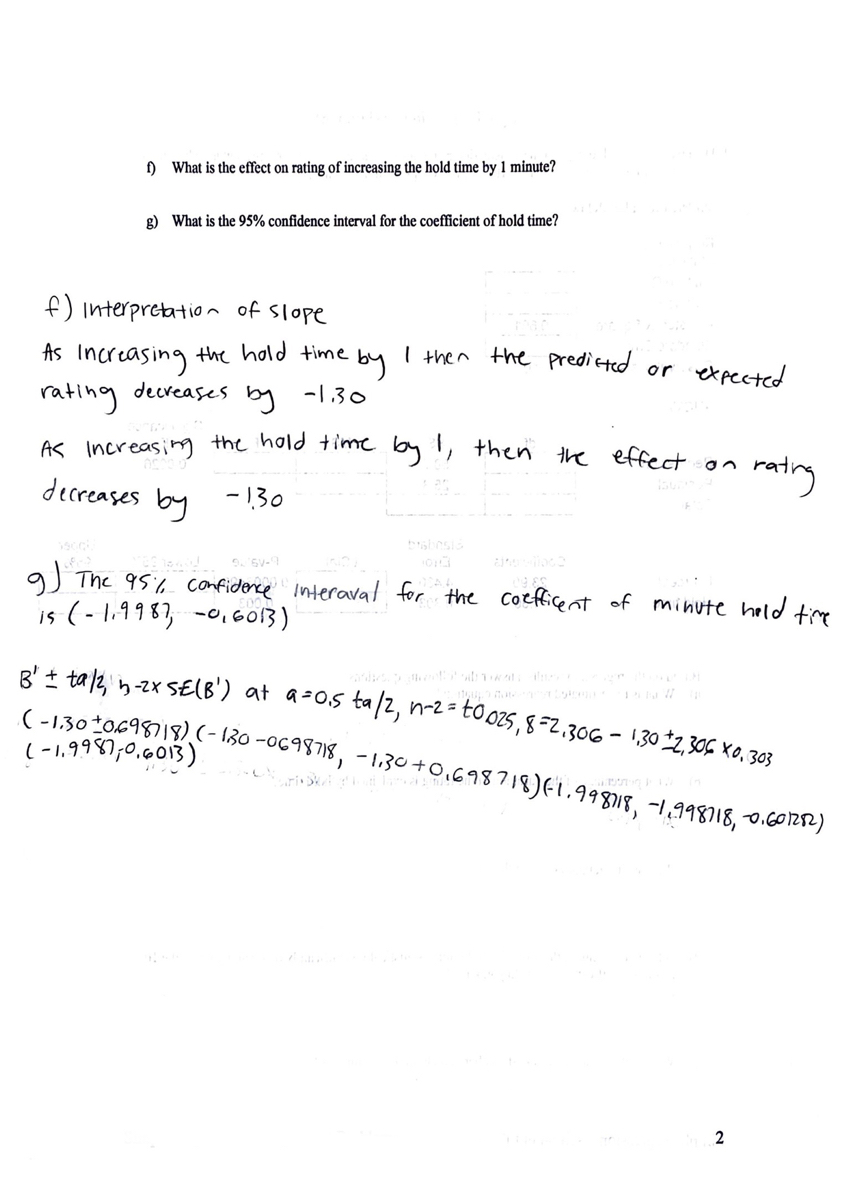 f) What is the effect on rating of increasing the hold time by 1 minute?
g) What is the 95% confidence interval for the coefficient of hold time?
f) Interpretation of slope
As Increasing the hold time by 1 then the predicted or expected
rating decreases by -1.30
As Increasing the hold time by 1, then the effect on rating
decreases by -1.30
g) The 95% confidence interaval for the coefficent of minute hold time
is (-1.9987, -0.6013)
B' ± ta/2, n-2 x SE(B') at a=0.5 ta/2, n-2 = t0.025, 8 = 2.306 - 1.30 ± 2.306 x 0.303
(-1.30 ± 0.698718) (-1.30 - 0698718, -1.30 + 0.698718) (-1.998718, -1.998718, -0.601282)
(-1.9987, -0.6013)
2